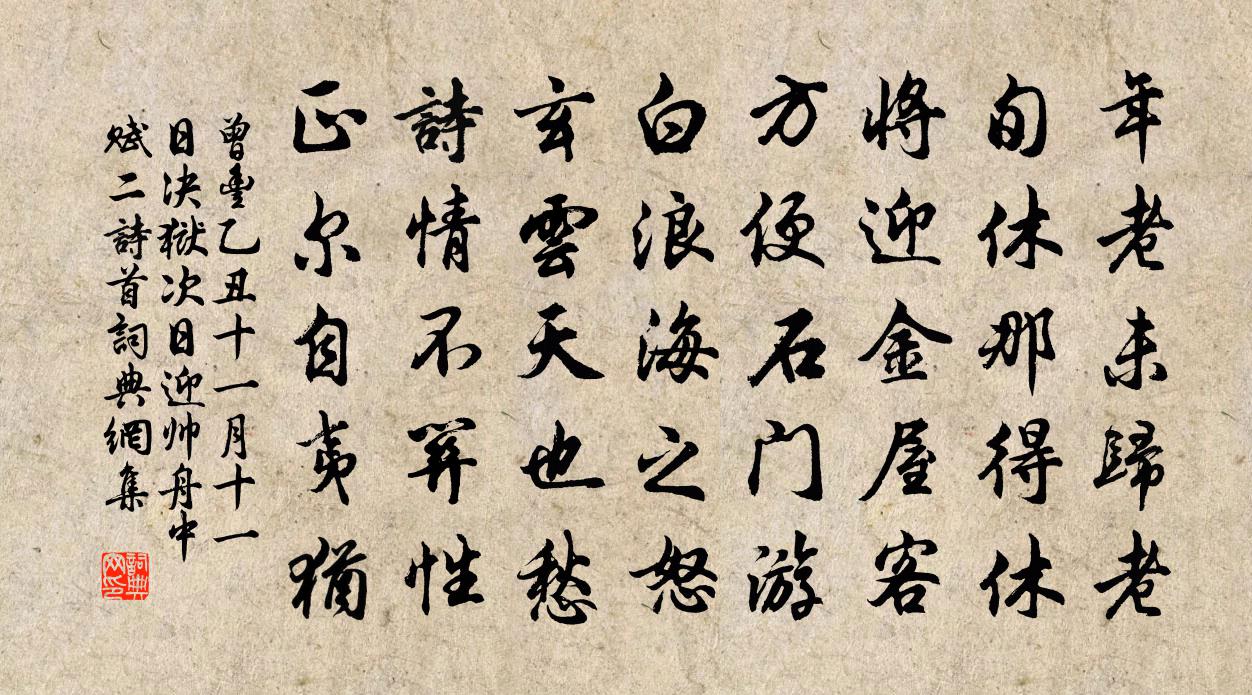 年老未歸老
旬休那得休
將迎金屋客
方便石门游
白浪海之怒
玄雲天也愁
詩情不算性
正尔自夷猶
曾豐乙丑十一月十一
日决獄次日迎帅舟中
赋二詩首詞典網集
詞典
网印